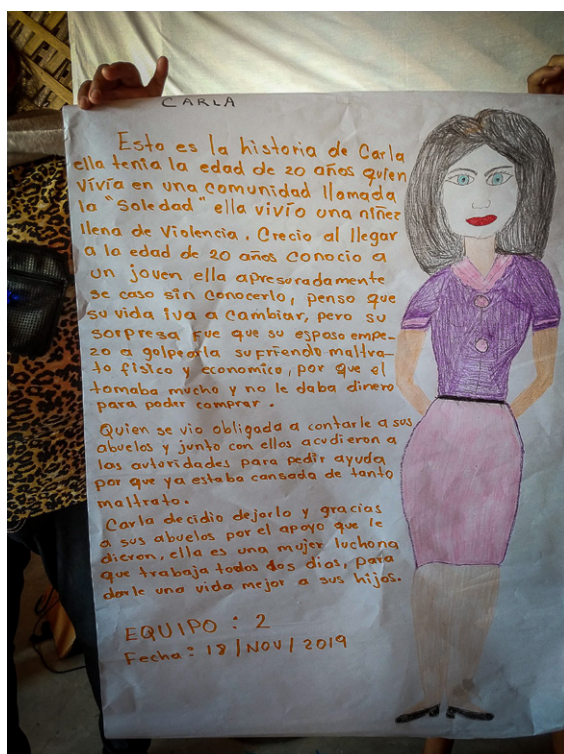 CARLA
Esta es la historia de Carla
ella tenia la edad de 20 años quien
vivía en una comunidad llamada
la "Soledad" ella vivío una niñez
llena de Violencia. Crecio al llegar
a la edad de 20 años conocio a
un joven ella apresuradamente
se caso sin conocerlo, penso que
su vida iva a cambiar, pero su
sorpresa fue que su esposo empe-
zo a golpearla sufriendo maltra-
to fisico y economico, por que el
tomaba mucho y no le daba dinero
para poder comprar.
Quien se vio obligada a contarle a sus
abuelos y junto con ellos acudieron a
las autoridades para pedir ayuda
por que ya estaba cansada de tanto
maltrato.
Carla decidio dejarlo y gracias
a sus abuelos por el apoyo que le
dieron, ella es una mujer luchona
que trabaja todos los dias, para
darle una vida mejor a sus hijos.
EQUIPO : 2
Fecha : 18/NOV/2019